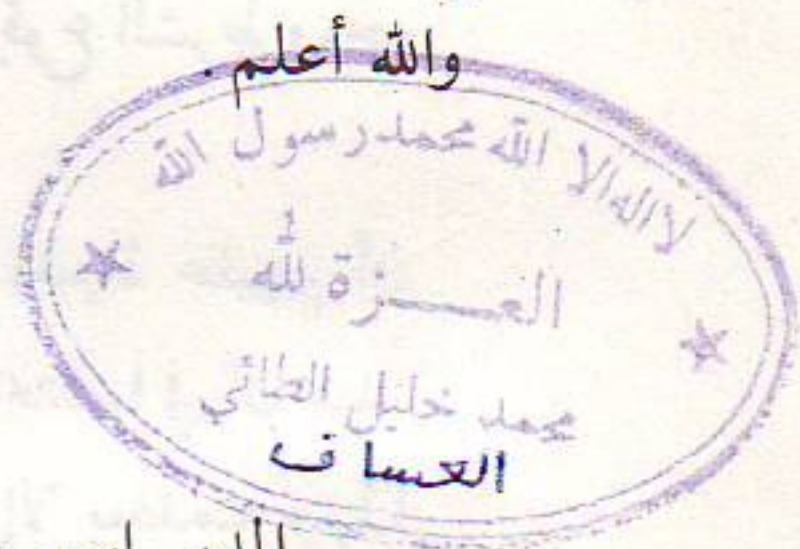 والله أعلم .
لا اله الا الله محمد رسول الله
العـــزة لله
محمد خليل الطائي
العساف